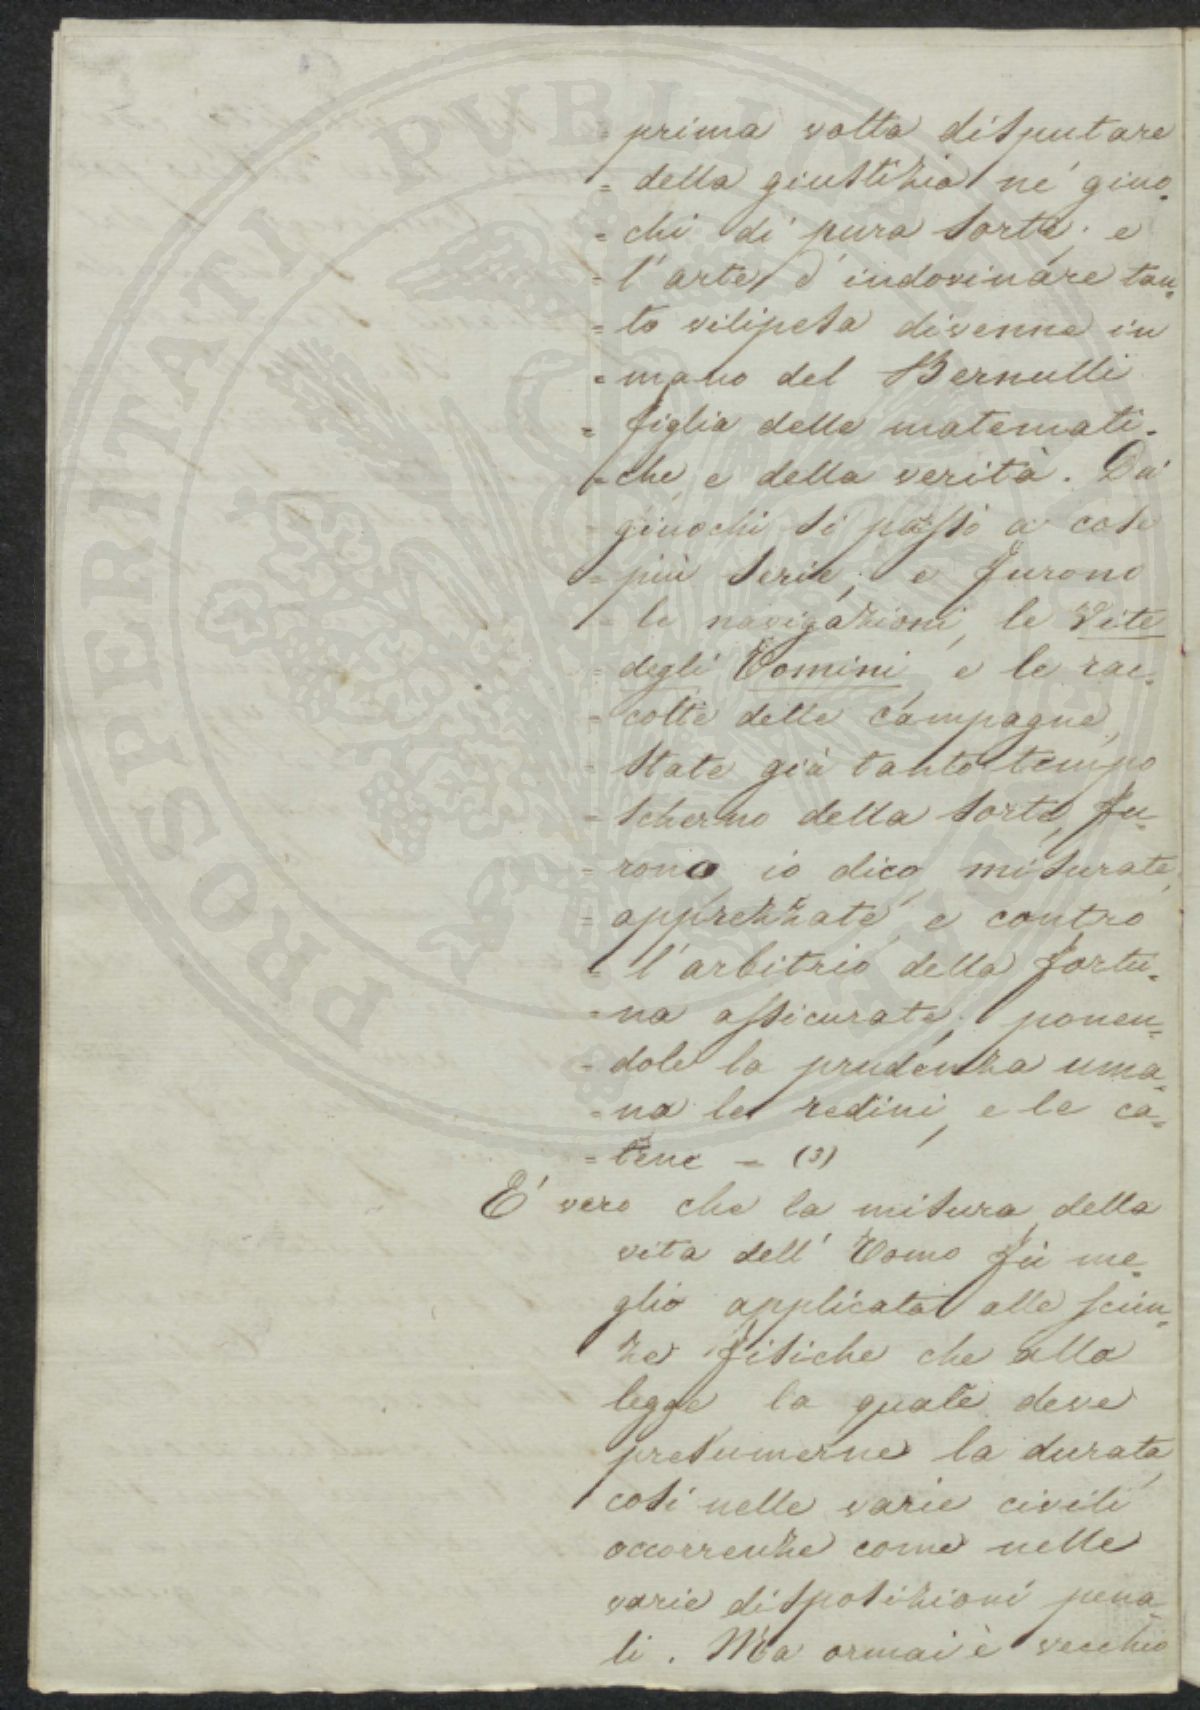 = prima volta disputare
= della giustizia ne' giuo=
= chi di pura sorte; e
= l'arte d'indovinare tan=
= to vilipesa divenne in
= mano del Bernulli
= figlia delle matemati=
= che, e della verità. Da'
= giuochi si passò a cose
= più serie; e furono
= le navigazioni, le Vite
= degli Uomini, e le rac=
= colte delle campagne,
= state già tanto tempo
= scherno della sorte, fu=
= rono, io dico, misurate,
= apprezzate, e contro
= l'arbitrio della fortu=
= na assicurate; ponen=
= dole la prudenza uma=
= na le redini, e le ca=
= tene = (3)
E' vero che la misura della
vita dell'Uomo fù me=
glio applicata alle scien=
ze fisiche che alla
legge la quale deve
presumerne la durata,
così nelle varie civili
occorrenze come nelle
varie disposizioni pena=
li. Ma ormai è vecchio
PROSPERITATI PUBLICAE AUGENDAE